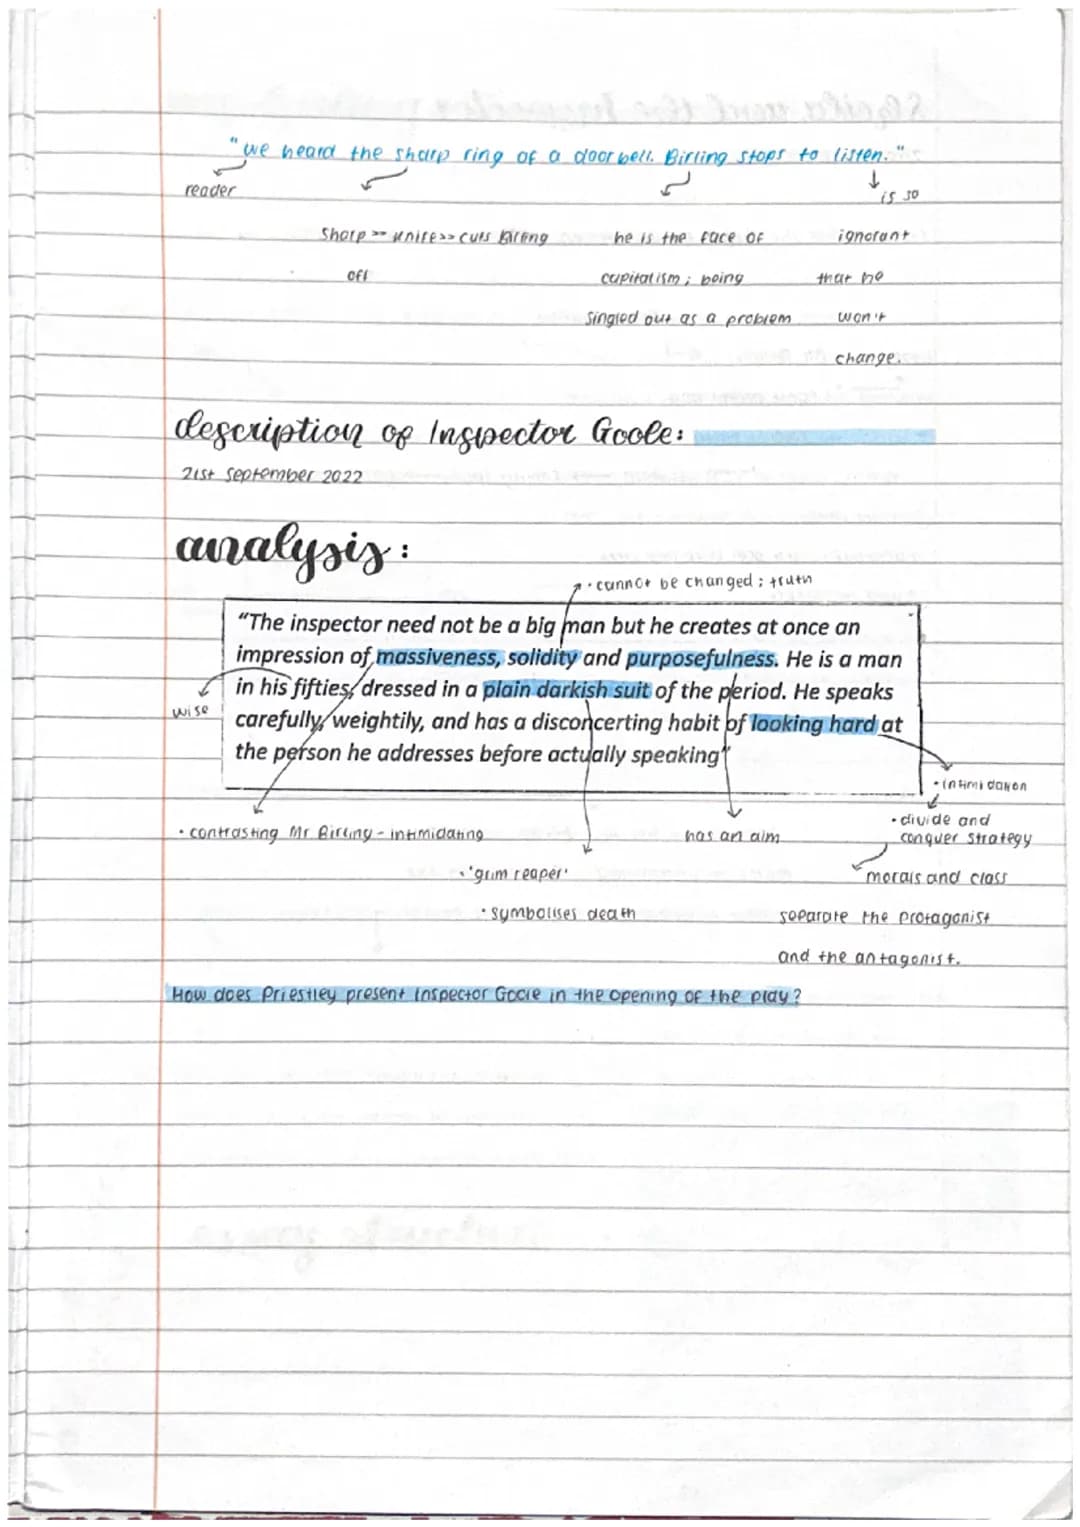 "we heard the sharp ring of a doorbell. Birling stops to listen."
reader
is so
Sharp >> knife >> cuts Birling
he is the face of
ignorant
off
capitalism; being
that he
singled out as a problem
won't
change.
description of Inspector Goole:
21st September 2022
analysis:
· cannot be changed; truth
"The inspector need not be a big man but he creates at once an
impression of massiveness, solidity and purposefulness. He is a man
in his fifties, dressed in a plain darkish suit of the period. He speaks
wise
carefully, weightily, and has a disconcerting habit of looking hard at
the person he addresses before actually speaking"
· intimidation
· contrasting Mr Birling - intimidating
has an aim
· divide and
conquer strategy
· 'grim reaper'
morals and class
· symbolises death
separate the protagonist
and the antagonist.
How does Priestley present Inspector Goole in the opening of the play?